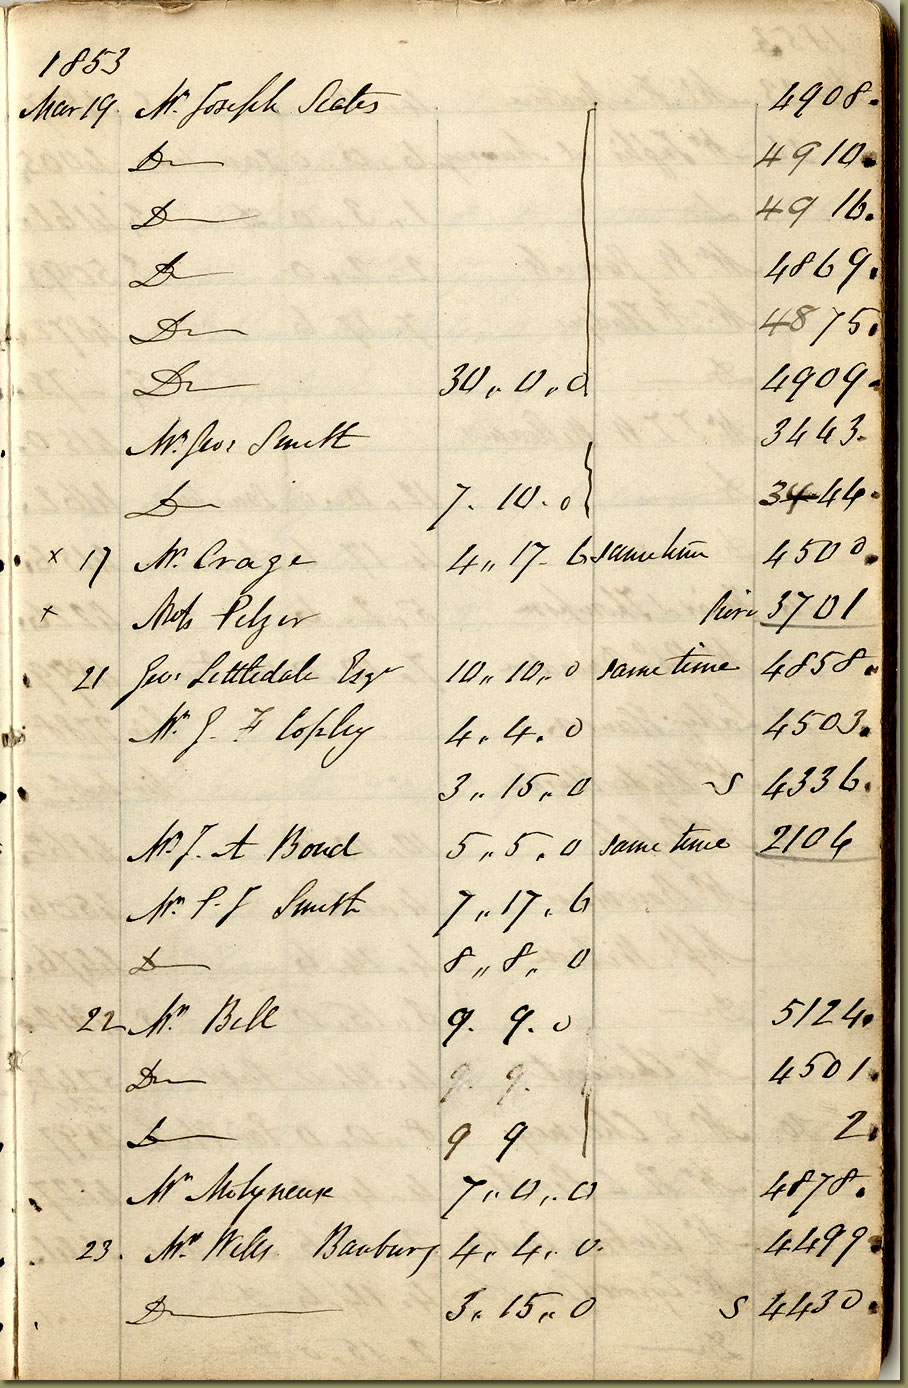 1853
Mar 19. Mr. Joseph Scates 4908.
Do 4910.
Do 4916.
Do 4869.
Do 4875.
Do 30,, 0,, 0 4909.
Mr. Geo: Smith 3443.
Do 7. 10. 0 3444.
x 17 Mr. Crage 4,, 17. 6 same time 4500
x Pelzer hire 3701
21 Geo: Littledale Esqr 10,, 10,, 0 same time 4858.
Mr. J. F Copley 4,, 4. 0 4503.
3,, 15,, 0 S 4336.
Mr. J. A Bond 5,, 5,, 0 same time 2106
Mr. P. J Smith 7,, 17,, 6
Do 8,, 8,, 0
22 Mr. Bell 9. 9. 0 5124.
Do 9. 9. 4501.
Do 9 9 2.
Mr. Molyneux 7,, 0,, 0 4878.
23. Mr. Wells Banbury 4,, 4,, 0. 4499
Do 3,, 15,, 0 S 4430.